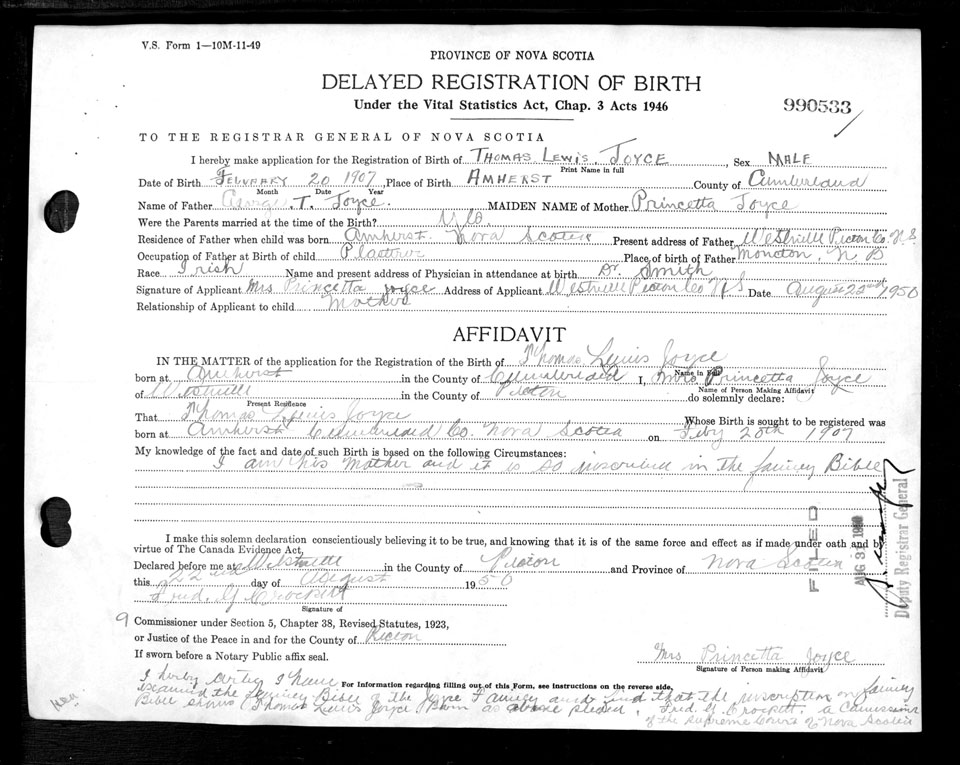 V.S. Form 1—10M-11-49
PROVINCE OF NOVA SCOTIA
DELAYED REGISTRATION OF BIRTH
Under the Vital Statistics Act, Chap. 3 Acts 1946
990533
TO THE REGISTRAR GENERAL OF NOVA SCOTIA
I hereby make application for the Registration of Birth of THOMAS LEWIS JOYCE, Sex MALE
Print Name in full
Date of Birth FEBUARY 20 1907, Place of Birth AMHERST County of Cumberland
Month Date Year
Name of Father George T. Joyce. MAIDEN NAME of Mother Princetta Joyce
Were the Parents married at the time of the Birth? Yes
Residence of Father when child was born Amherst. Nova Scotia Present address of Father Westville Pictou Co. N.S.
Occupation of Father at Birth of child Place of birth of Father Moncton, N B
Race Irish Name and present address of Physician in attendance at birth Dr. Smith
Signature of Applicant Mrs Princetta Joyce Address of Applicant Westville Pictou Co N S Date August 22nd 1950
Relationship of Applicant to child Mother
AFFIDAVIT
IN THE MATTER of the application for the Registration of the Birth of Thomas Lewis Joyce
Name in Full
born at Amherst in the County of Cumberland I, Mrs Princetta Joyce
Name of Person Making Affidavit
of Westville in the County of Pictou do solemnly declare:
Present Residence
That Thomas Lewis Joyce Whose Birth is sought to be registered was
born at Amherst Cumberland Co. Nova Scotia on Feby 20th 1907
My knowledge of the fact and date of such Birth is based on the following Circumstances:
I am his mother and it is so inscribed in the family Bible
I make this solemn declaration conscientiously believing it to be true, and knowing that it is of the same force and effect as if made under oath and by
virtue of The Canada Evidence Act,
Declared before me at Westville in the County of Pictou and Province of Nova Scotia
this 22nd day of August 1950
Fred. G Crockett
Signature of
9 Commissioner under Section 5, Chapter 38, Revised Statutes, 1923,
or Justice of the Peace in and for the County of Pictou
If sworn before a Notary Public affix seal.
Mrs Princetta Joyce
Signature of Person making Affidavit
For Information regarding filling out of this Form, see instructions on the reverse side,
I hereby certify I have
examined the family Bible of the Joyce Family and find that the inscription on family
Bible shows Thomas Lewis Joyce Born as above stated. Fred. G. Crockett. a Commissioner
of the Supreme Court of Nova Scotia
FILED
AUG 31 1950
Deputy Registrar General